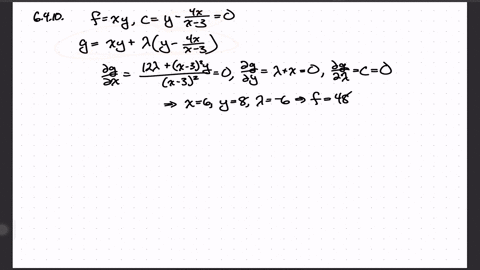 6.4.10. f=xy, c = y - 4x/(x-3) = 0
g = xy + λ(y - 4x/(x-3))
∂g/∂x = (12λ + (x-3)²y)/(x-3)² = 0, ∂g/∂y = λ+x = 0, ∂g/∂λ = c = 0
⇒ x=6, y=8, λ=-6 ⇒ f=48